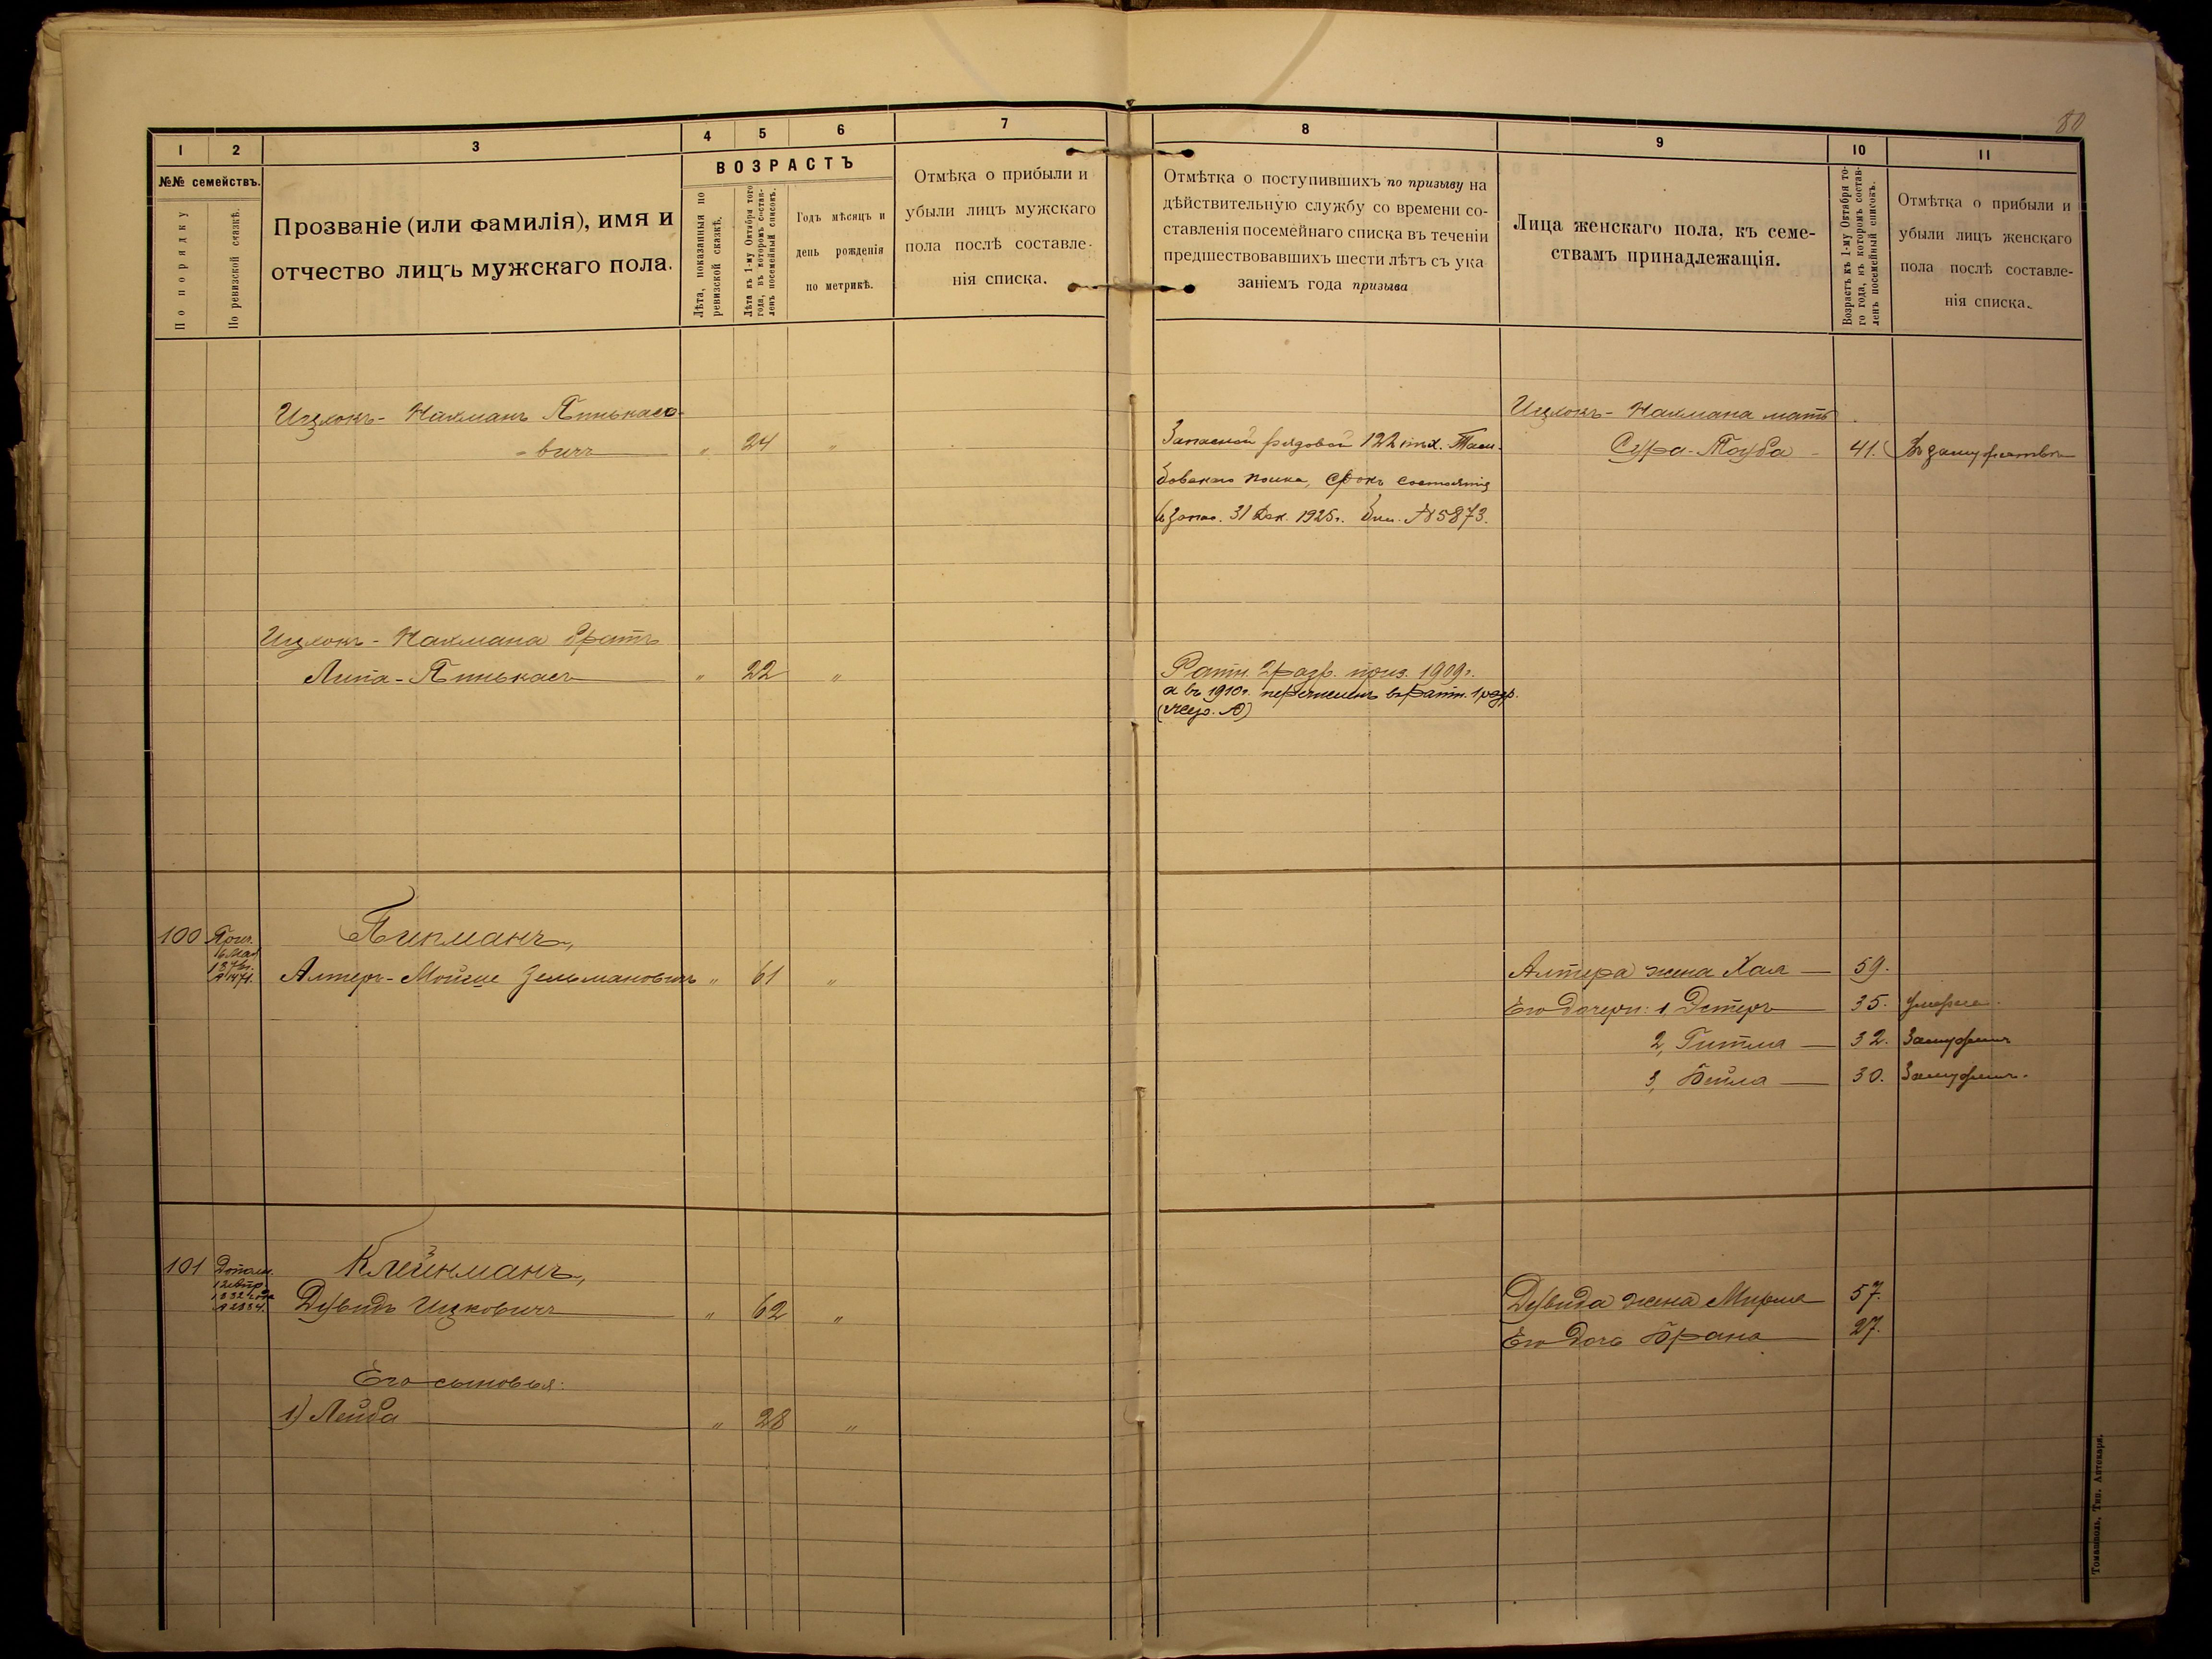 80
1 2 3 4 5 6 7 8 9 10 11
№№ семействъ.
По порядку
По ревизской сказкѣ.
Прозваніе (или фамилія), имя и
отчество лицъ мужскаго пола.
ВОЗРАСТЪ
Лѣта, показанныя по
ревизской сказкѣ.
Лѣта къ 1-му Октября того
года, въ которомъ состав-
ленъ посемейный списокъ.
Годъ мѣсяцъ и
день рожденія
по метрикѣ.
Отмѣка о прибыли и
убыли лицъ мужскаго
пола послѣ составле-
нія списка.
Отмѣтка о поступившихъ по призыву на
дѣйствительную службу со времени со-
ставленія посемейнаго списка въ теченіи
предшествовавшихъ шести лѣтъ съ ука
заніемъ года призыва
Лица женскаго пола, къ семе-
ствамъ принадлежащія.
Возрастъ къ 1-му Октября то-
го года, въ которомъ состав-
ленъ посемейный списокъ.
Отмѣтка о прибыли и
убыли лицъ женскаго
пола послѣ составле-
нія списка.
Ицхокъ-Нахманъ Пинькасо-
-вичъ " 24 "
Запасной рядовой 122 пѣх. Там-
бовскаго полка, срокъ состоянія
въ запас. 31 Дек. 1925г. № 5873.
Ицхокъ-Нахмана мать
Сура-Тауба 41. Въ замужествѣ
Ицхокъ-Нахмана братъ
Липа-Пинькасъ " 22 "
Ратн. 2 разр. приз. 1909г.
а въ 1910г. перечисленъ въ ратн. 1 разр.
100 Прич.
16 Мая
187 г.
№ 1471.
Пикманъ,
Алтеръ-Мойше Зельмановичъ " 61 "
Алтера жена Хая — 59.
Его дочери: 1, Эстеръ 35. умерла.
2, Гитля — 32. Замужемъ
3, Бейла — 30. Замужемъ.
101 Допол.
12 Апр.
1882 года
№ 2884.
Клейнманъ,
Дувидъ Ицковичъ " 62 "
Дувида жена Мирля 57.
Его дочь Брана 27.
Его сыновья:
1) Лейба " 28 "
Томашполь, Тип. Аптекаря.